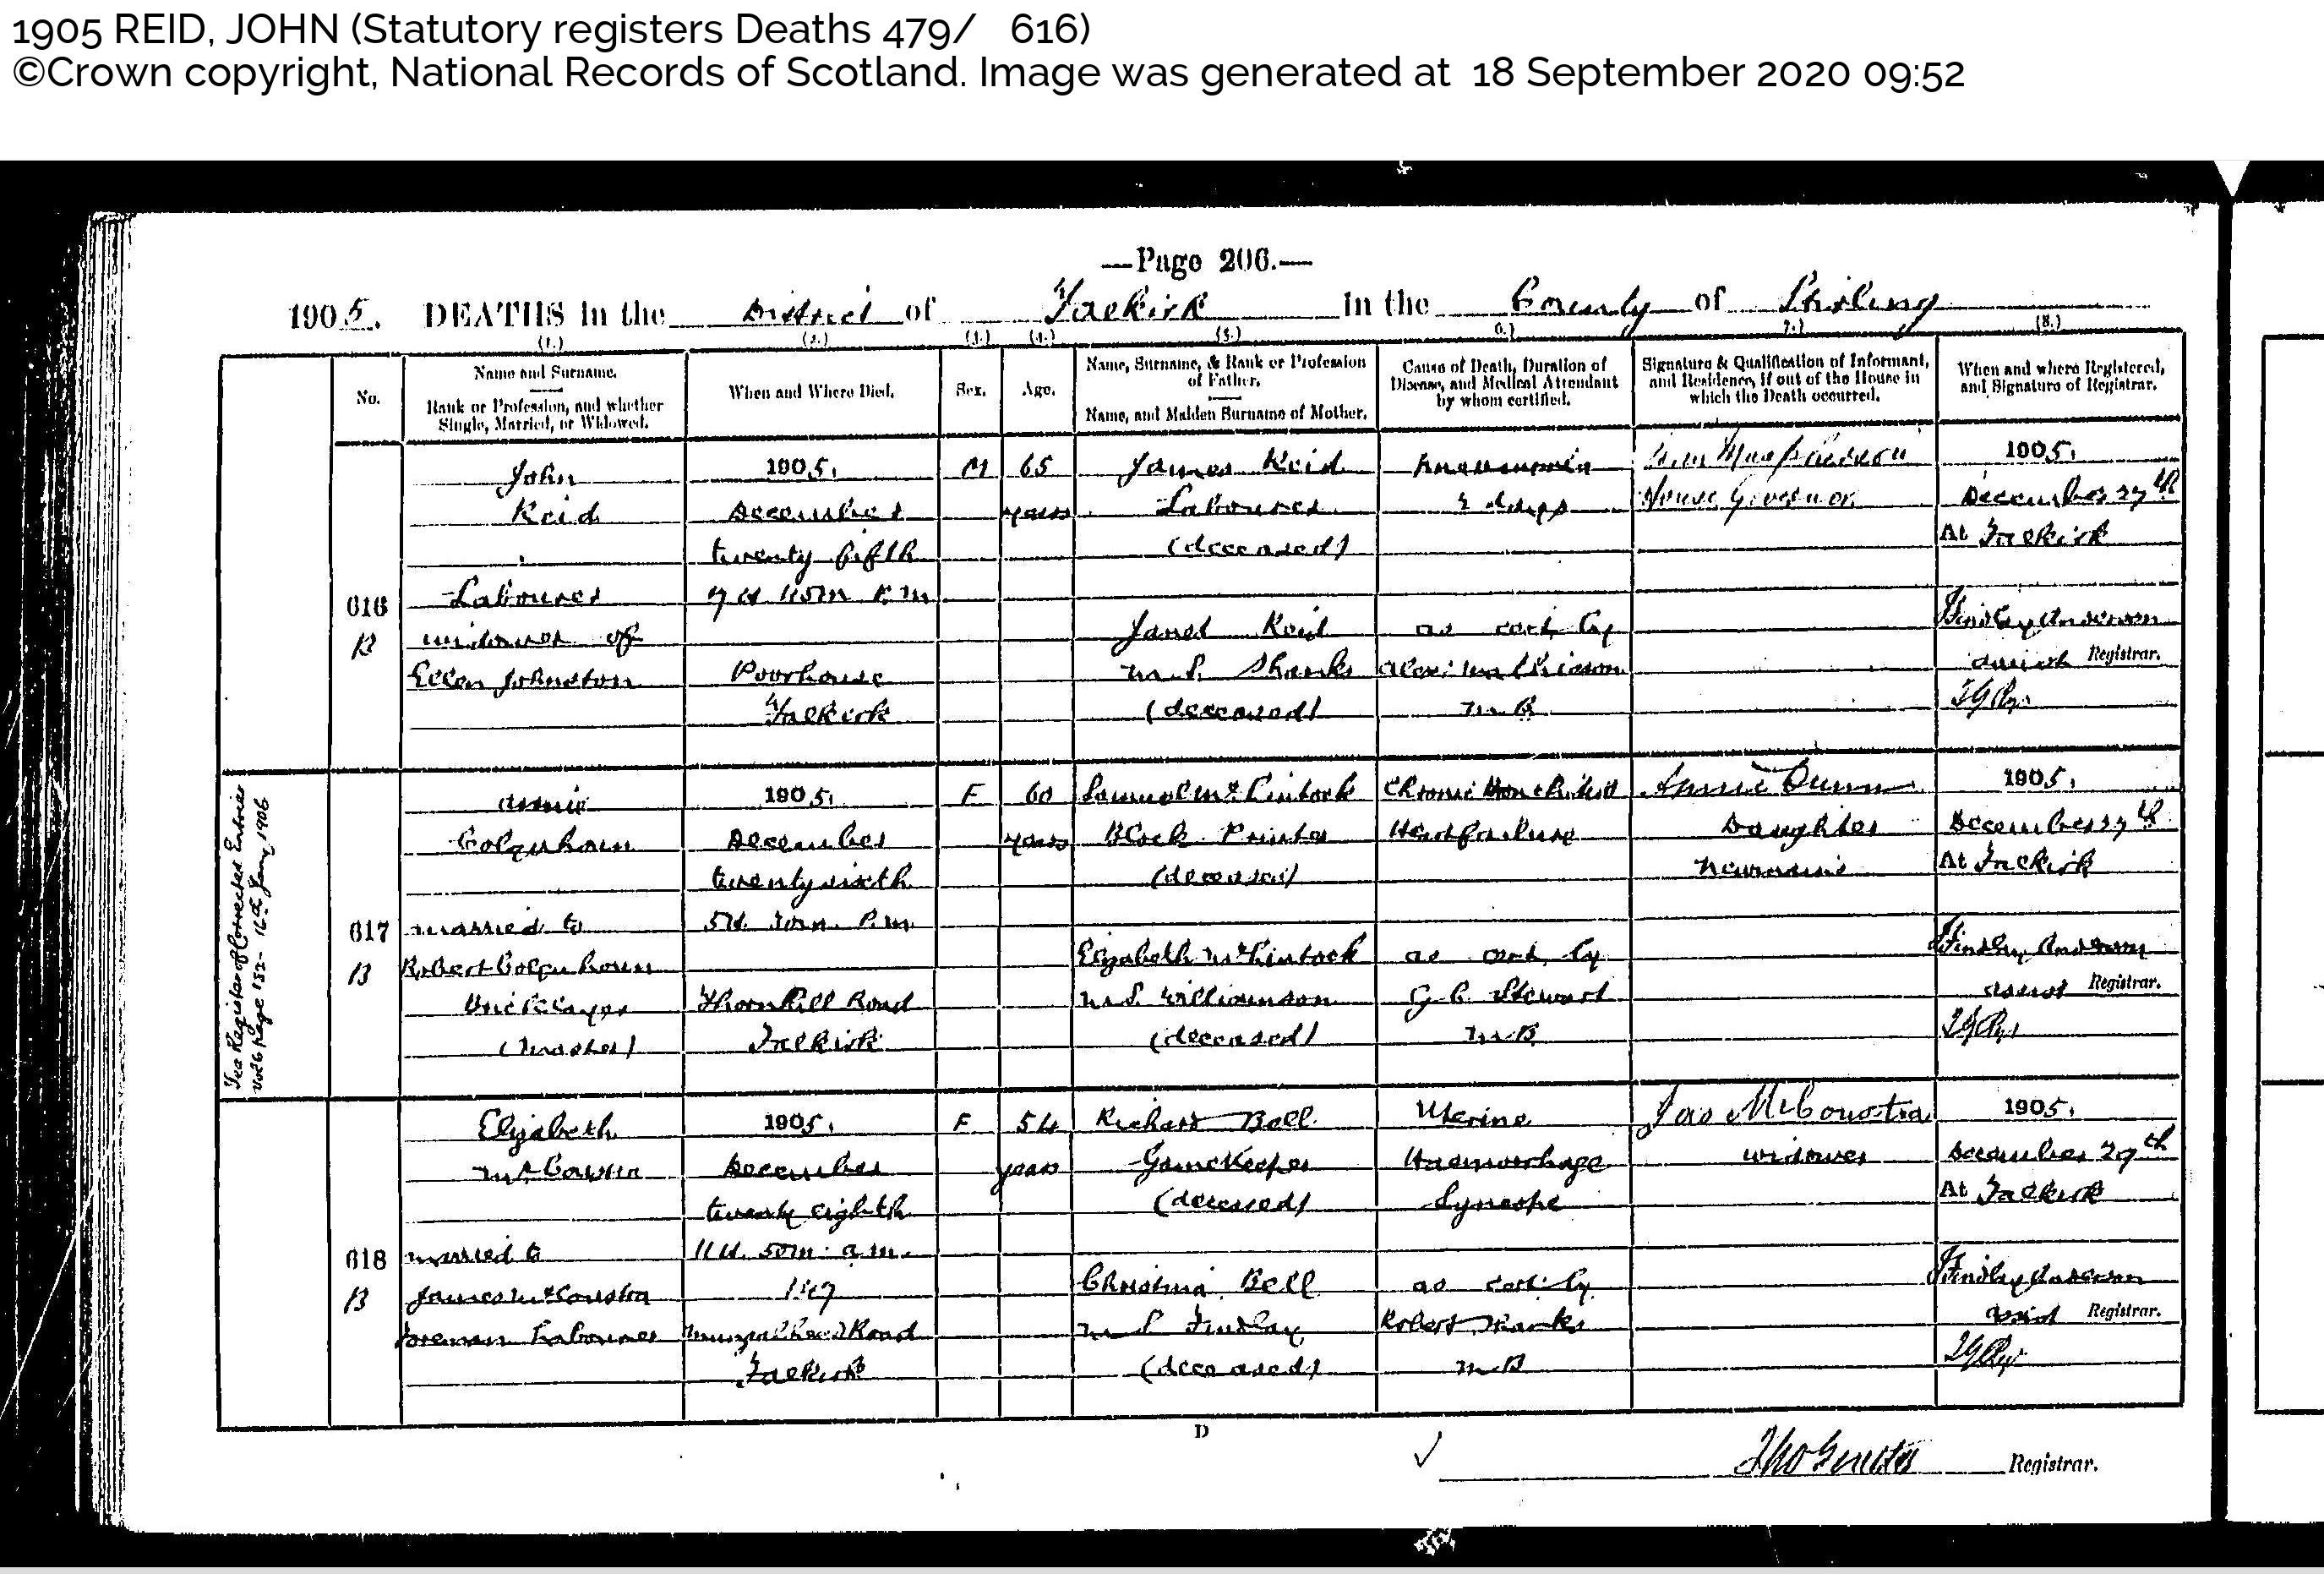 1905 REID, JOHN (Statutory registers Deaths 479/ 616)
©Crown copyright, National Records of Scotland. Image was generated at 18 September 2020 09:52
—Page 206.—
1905. DEATHS in the District of Falkirk in the County of Stirling
(1.) (2.) (3.) (4.) (5.) (6.) (7.) (8.)
No.
Name and Surname.
Rank or Profession, and whether
Single, Married, or Widowed.
When and Where Died.
Sex.
Age.
Name, Surname, & Rank or Profession
of Father.
Name, and Maiden Surname of Mother.
Cause of Death, Duration of
Disease, and Medical Attendant
by whom certified.
Signature & Qualification of Informant,
and Residence, if out of the House in
which the Death occurred.
When and where Registered,
and Signature of Registrar.
616
B
John
Reid
Labourer
widower of
Ellen Johnston
1905.
December
twenty fifth
P.M
Poorhouse
Falkirk
M
65
years
James Reid
Labourer
(deceased)
Janet Reid
M.S. Shanks
(deceased)
Pneumonia
days
as cert. by
M.B.
House Governor
1905.
December 27th
At Falkirk
Findlay Anderson
Assist Registrar.
See Register of Corrected Entries
Vol 6 Page 152 - 16th Jany 1906
617
B
Annie
Colquhoun
married to
Robert Colquhoun
Bricklayer
(Master)
1905.
December
twenty sixth
5H. P.M.
Thornhill Road
Falkirk
F
60
years
Samuel McLintock
Block Printer
(deceased)
Elizabeth McLintock
M.S. Williamson
(deceased)
Chronic Bronchitis
Heart failure
as cert. by
G C Stewart
M.B.
Annie Dunn
Daughter
1905.
December 27th
At Falkirk
Findlay Anderson
Assist Registrar.
618
B
Elizabeth
married to
James
Foreman Labourer
1905.
December
twenty eighth
11H. 50M. a.m.
Road
Falkirk
F
54
years
Richard Bell
Gamekeeper
(deceased)
Christina Bell
M.S. Findlay
(deceased)
Uterine
Haemorrhage
Syncope
as cert. by
Robert
M.B
Jas
widower
1905.
December 29th
At Falkirk
Findlay Anderson
Assist Registrar.
D
Registrar.